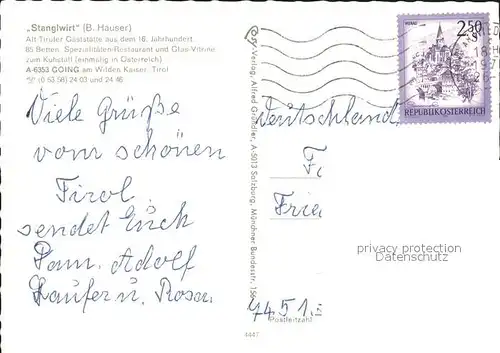 „Stanglwirt" (B. Hauser)
Alt-Tiroler Gaststätte aus dem 16. Jahrhundert
85 Betten. Spezialitäten-Restaurant und Glas-Vitrine
zum Kuhstall (einmalig in Österreich)
A-6353 GOING am Wilden Kaiser, Tirol
(0 53 58) 24 03 und 24 46
Viele Grüße
vom schönen
Tirol
sendet Euch
Fam. Adolf
Laufer u. Rosa
Verlag, Alfred Gründler, A-5013 Salzburg, Münchner Bundesstr. 156
4447
2.50
S
REPUBLIK ÖSTERREICH
Deutschland
F
Frie
7451
Postleitzahl
privacy protection
DATENSCHUTZ